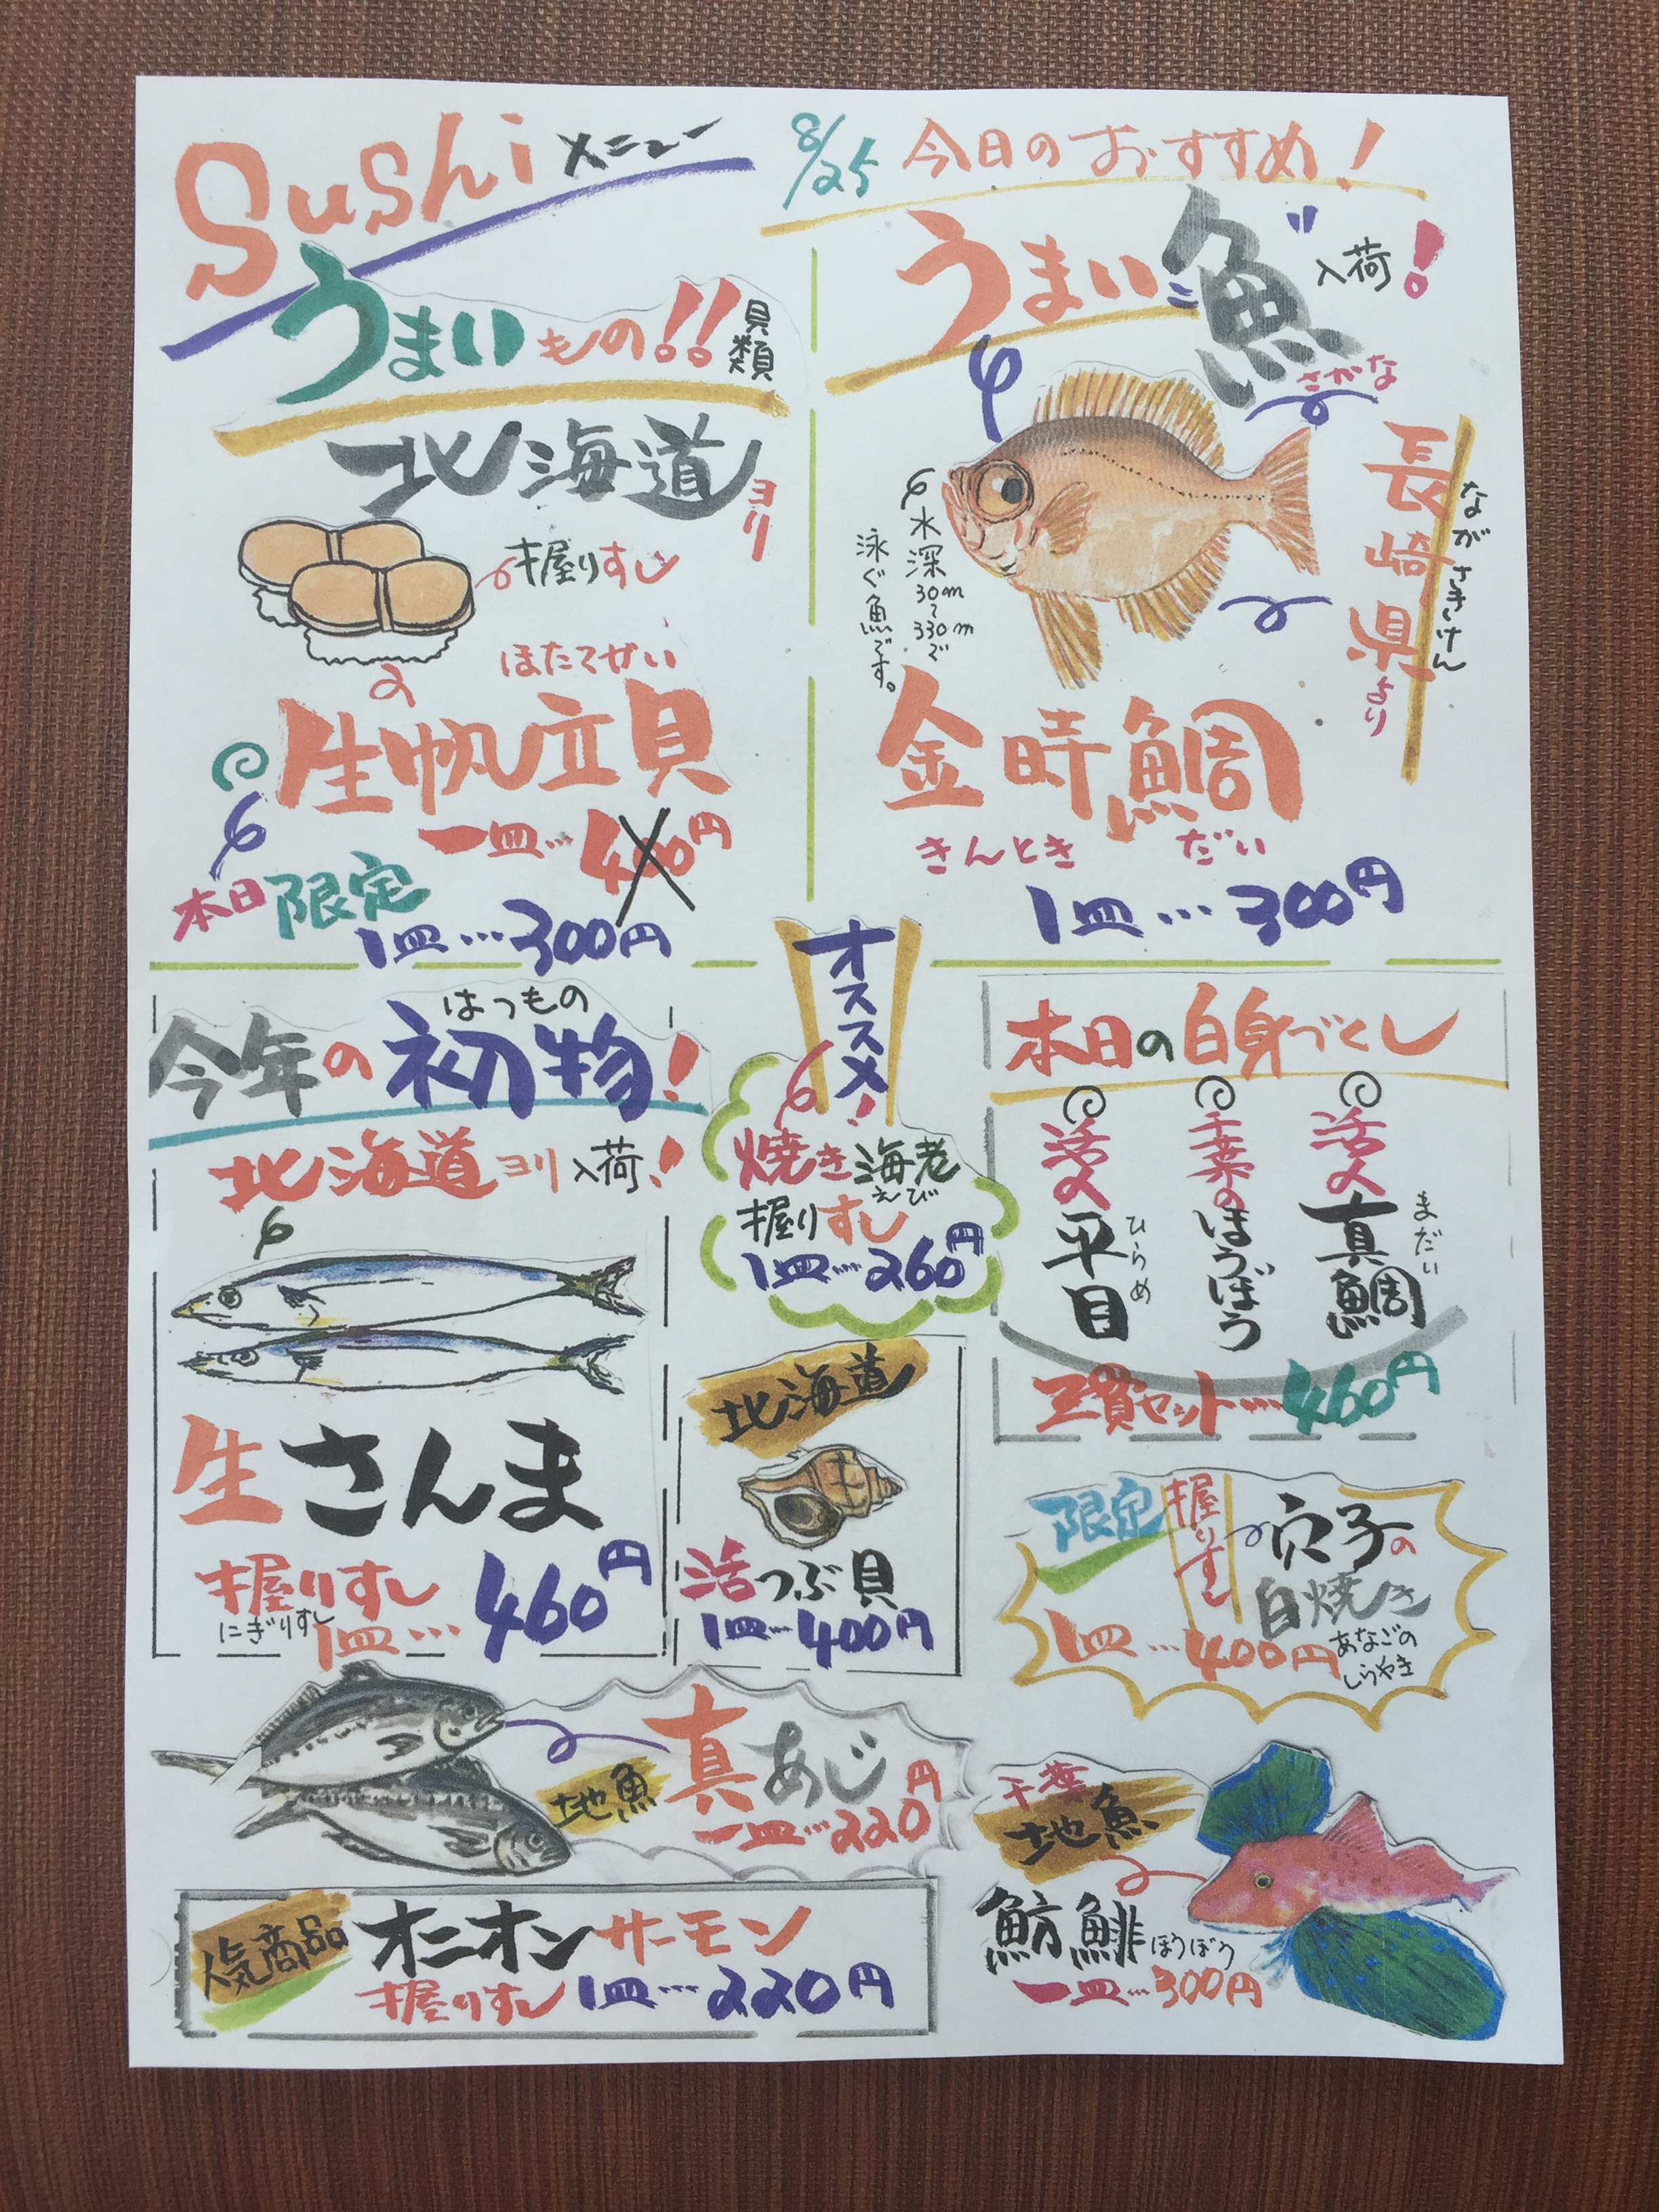 Sushi メニュー
うまいもの!! 貝類
北海道ヨリ
握りすし
ほたてがい
生帆立貝
一皿…400円
本日限定
1皿…300円
8/25 今日のおすすめ!
うまい魚"入荷!
さかな
長崎県より
ながさきけん
水深30m〜330mで
泳ぐ魚です。
金時鯛
きんとき だい
1皿…300円
はつもの
今年の初物!
北海道ヨリ入荷!
生さんま
握りすし
にぎりすし
1皿…460円
オススメ!
焼き海老
えび
握りすし
1皿…260円
北海道
活つぶ貝
1皿…400円
本日の白身づくし
活〆真鯛
まだい
千葉のほうぼう
活〆平目
ひらめ
三貫セット…460円
限定
握りすし
穴子の
白焼き
あなごの
しらやき
1皿…400円
地魚
真あじ
一皿…220円
千葉
地魚
魴鯡 ほうぼう
一皿…300円
人気商品
オニオンサーモン
握りすし 1皿…220円